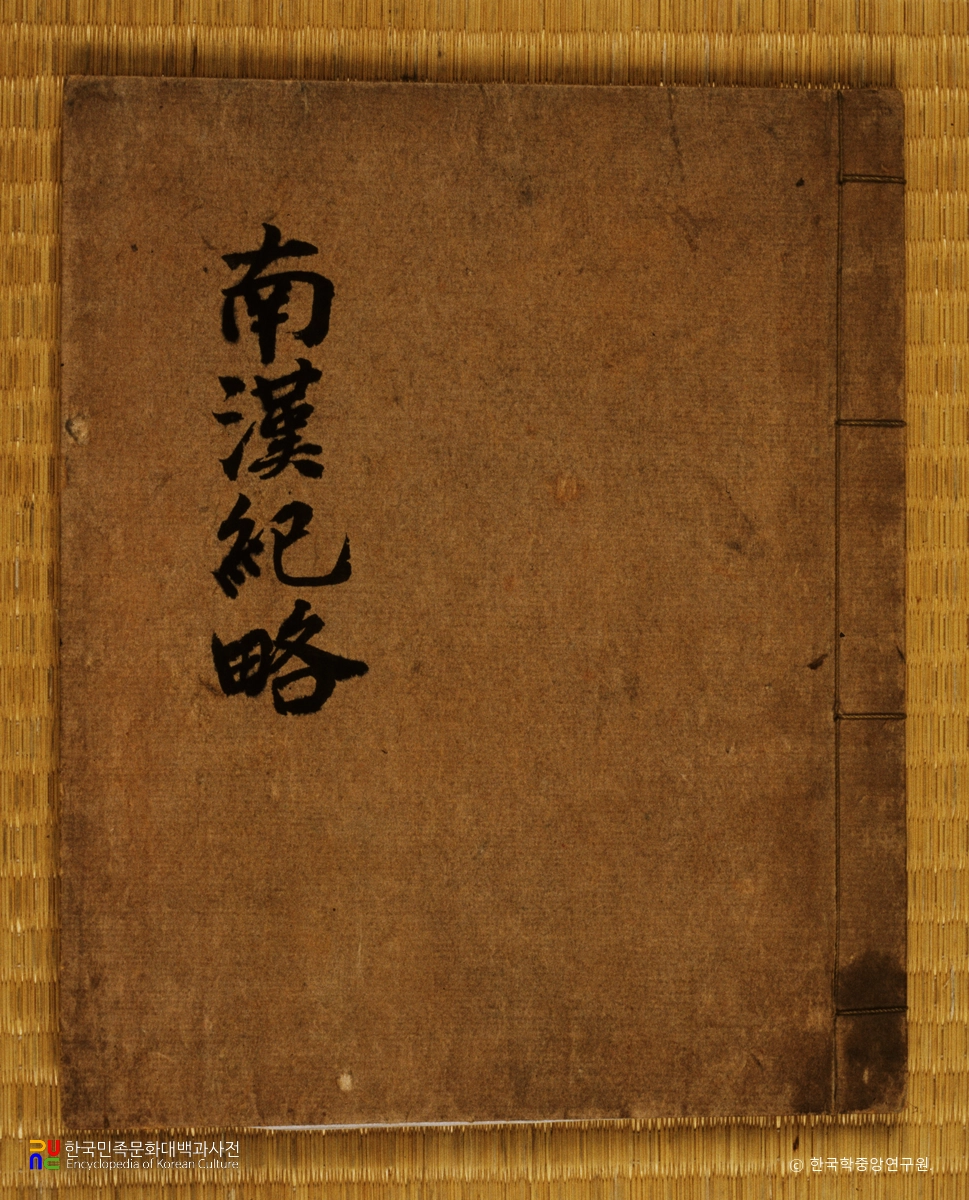 南漢紀略
한국민족문화대백과사전
Encyclopedia of Korean Culture
© 한국학중앙연구원